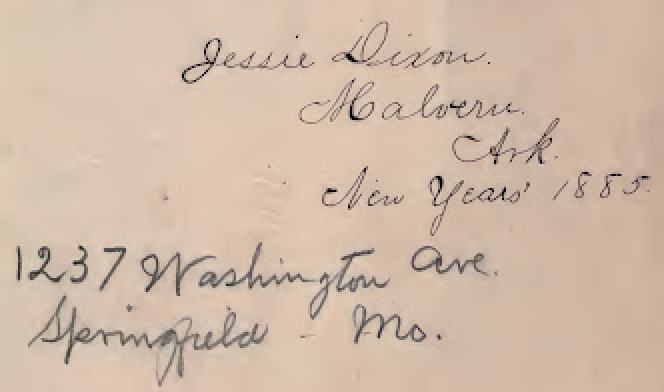 Jessie Dixon.
Malvern.
Ark.
New Years' 1885.
1237 Washington Ave.
Springfield - Mo.